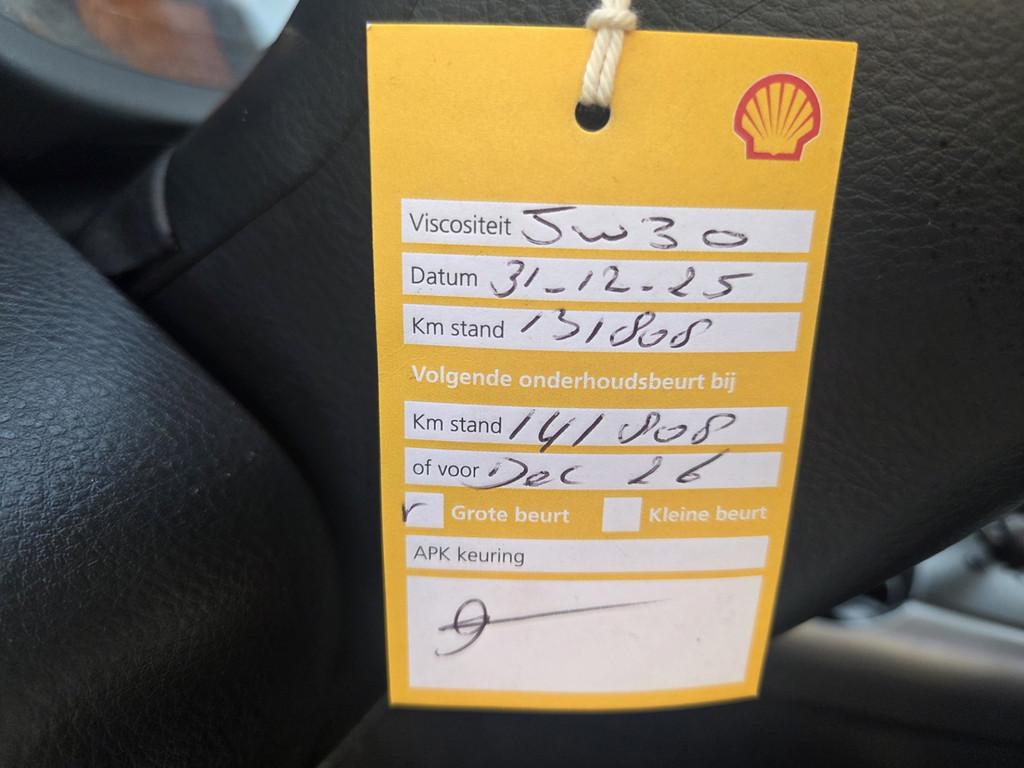 Viscositeit 5w30
Datum 31-12-25
Km stand 131808
Volgende onderhoudsbeurt bij
Km stand 141808
of voor Dec 26
Grote beurt Kleine beurt
APK keuring